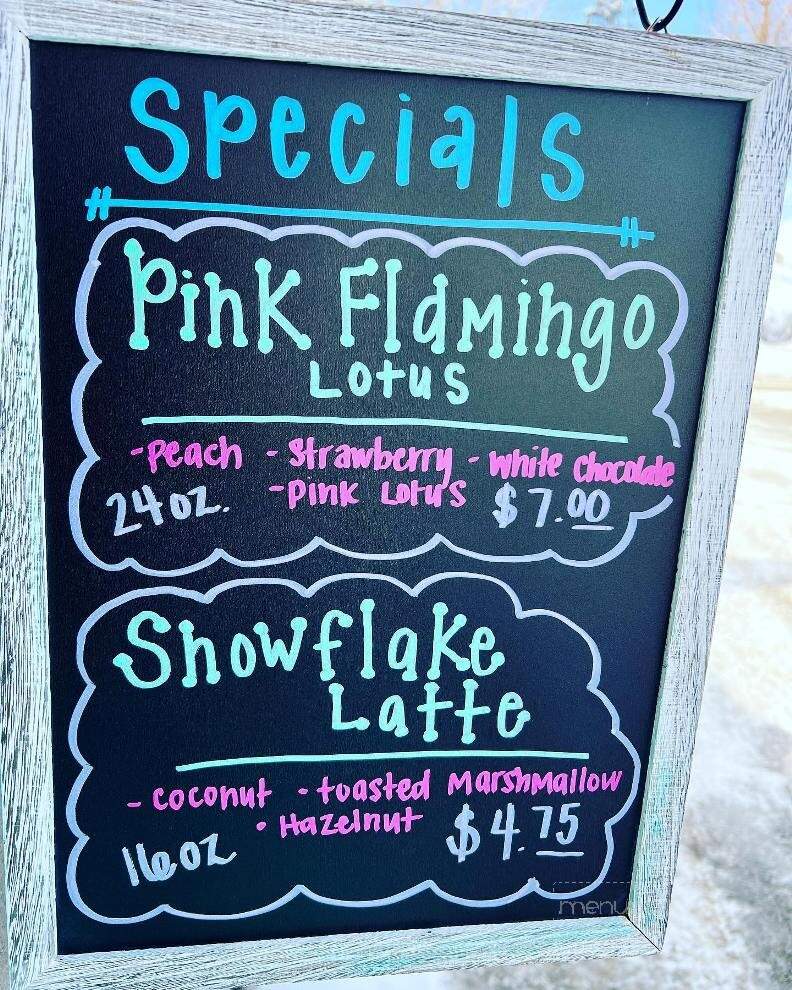 Specials
Pink Flamingo
Lotus
-Peach - Strawberry - White Chocolate
24oz. -Pink Lotus $7.00
Snowflake
Latte
- coconut - toasted Marshmallow
16oz • Hazelnut $4.75
menu